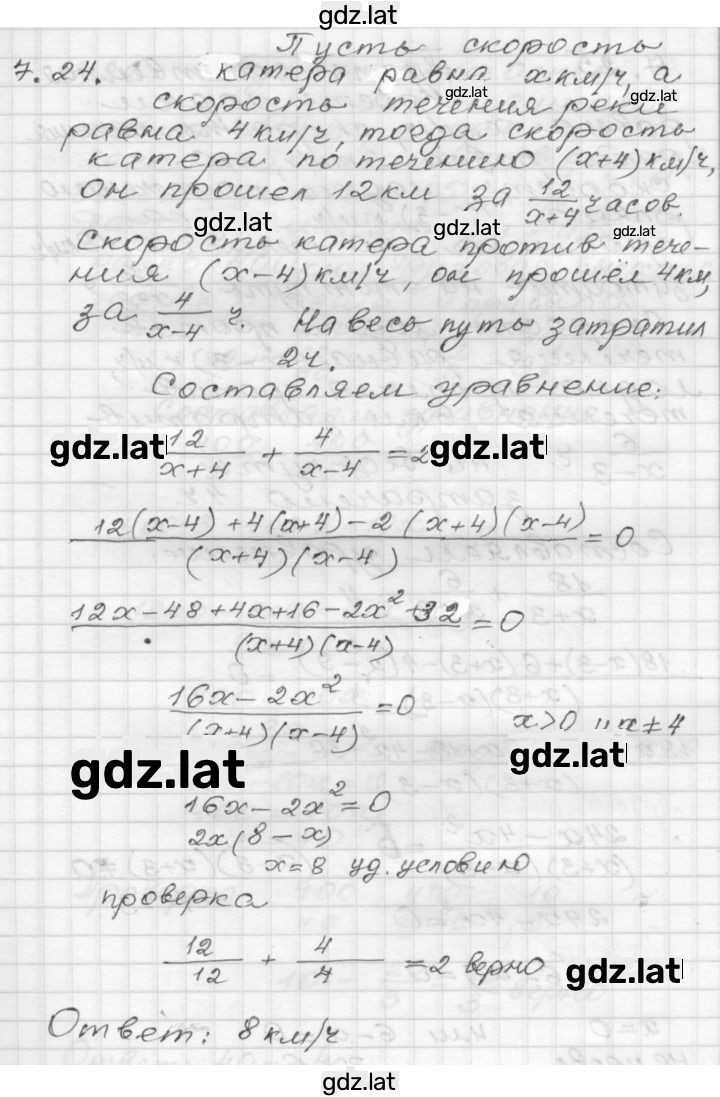 gdz.lat
Пусть скорость
7.24. катера равна x км/ч, а
gdz.lat
скорость течения реки
gdz.lat
равна 4 км/ч, тогда скорость
катера по течению (x+4) км/ч,
он прошел 12 км за 12/(x+4) часов.
gdz.lat gdz.lat
Скорость катера против тече-
ния (x-4) км/ч, он прошёл 4 км,
за 4/(x-4) ч. На весь путь затратил
2ч.
Составляем уравнение:
gdz.lat 12/(x+4) + 4/(x-4) = 2 gdz.lat
(12(x-4) + 4(x+4) - 2(x+4)(x-4))/((x+4)(x-4)) = 0
(12x - 48 + 4x + 16 - 2x² + 32)/((x+4)(x-4)) = 0
(16x - 2x²)/((x+4)(x-4)) = 0 x>0 и x≠4
gdz.lat gdz.lat
16x - 2x² = 0
2x(8-x)
x=8 уд. условию
проверка
12/12 + 4/4 = 2 верно gdz.lat
Ответ: 8 км/ч
gdz.lat